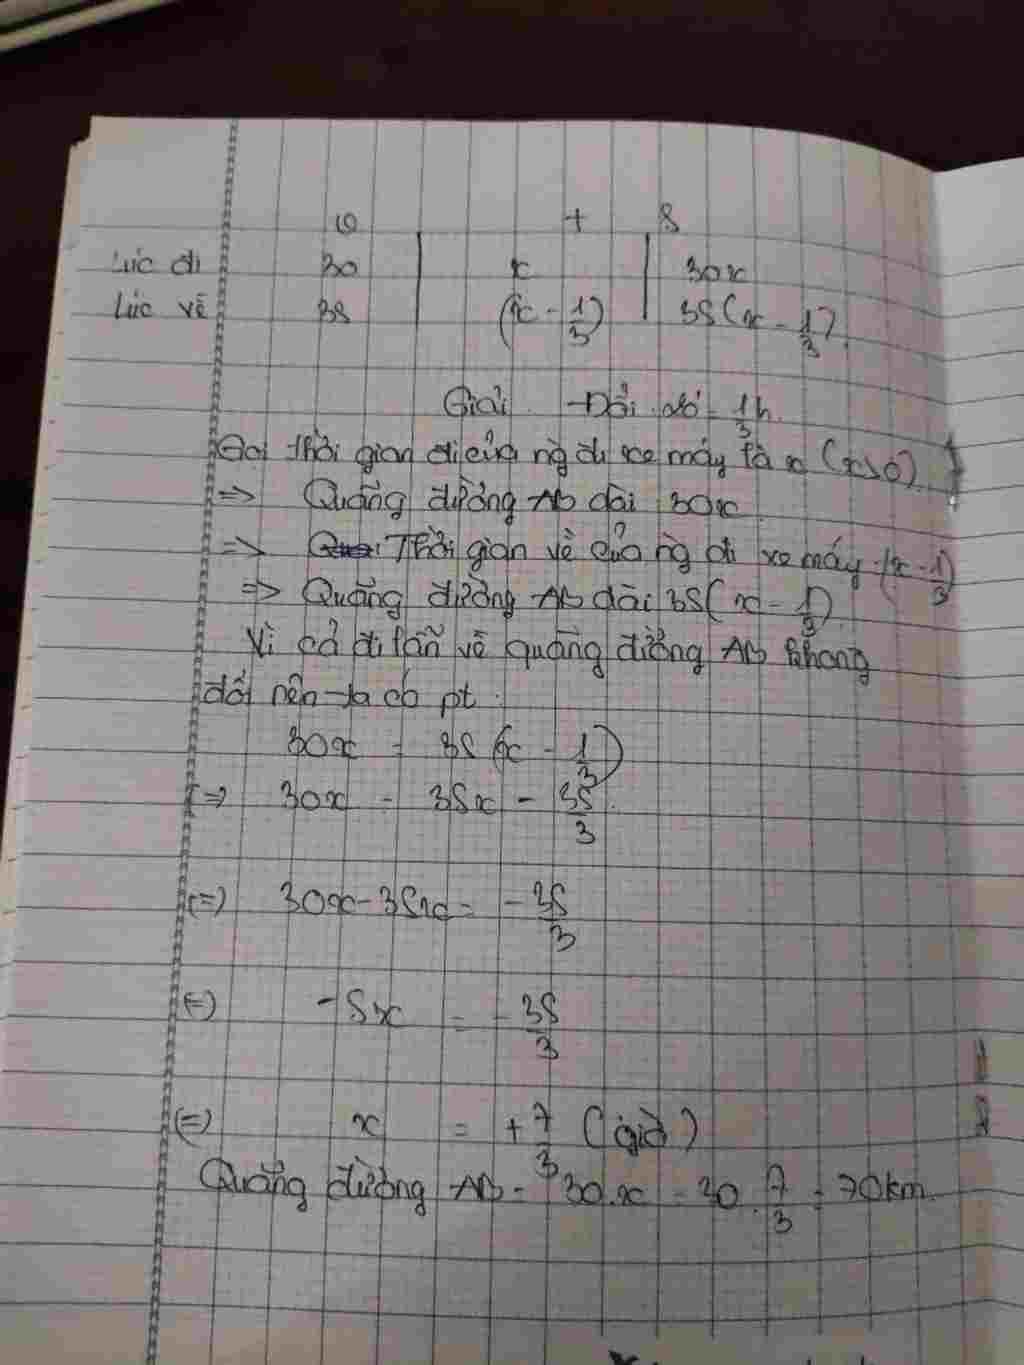 v t s
Lúc đi 30 x 30x
Lúc về 35 (x - 1/3) 35(x - 1/3)
Giải. Đổi = 1/3 h.
Gọi thời gian đi của ng đi xe máy là x (x>0).
=> Quãng đường AB dài 30x
=> Thời gian về của ng đi xe máy (x - 1/3)
=> Quãng đường AB dài 35(x - 1/3)
Vì cả đi lẫn về quãng đường AB không
đổi nên ta có pt:
30x = 35(x - 1/3)
(=> 30x = 35x - 35/3.
(=) 30x - 35x = - 35/3
(=) -5x = - 35/3
(=) x = + 7/3 (giờ)
Quãng đường AB = 30.x = 30. 7/3 = 70km.